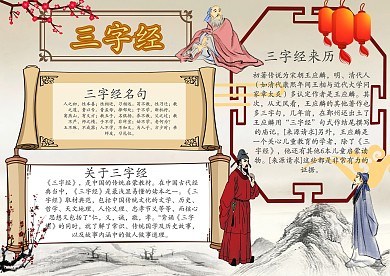 三字经
三字经名句
人之初，性本善，性相近，习相远，苟不教，性乃迁，教
之道，贵以专，昔孟母，择邻处，子不学，断机杼，
窦燕山，有义方，教五子，名俱扬，养不教，父之过，教
不严，师之惰，子不学，非所宜，幼不学，老何为，
玉不琢，不成器，人不学，不知义，为人子，方少时，亲
师友，习礼仪。
关于三字经
《三字经》，是中国的传统启蒙教材。在中国古代经
典当中，《三字经》是最浅显易懂的读本之一。《三
字经》取材典范，包括中国传统文化的文学、历史、
哲学、天文地理、人伦义理、忠孝节义等等，而核心
思想又包括了“仁，义，诚，敬，孝。”背诵《三字
经》的同时，就了解了常识、传统国学及历史故事，
以及故事内涵中的做人做事道理。
三字经来历
初若传说为宋朝王应麟。明、清代人
（如清代康熙年间王相与近代大学问
家章太炎）多认定作者是王应麟。其
次，从文风看，王应麟的其他著作也
多三字句。几年前，在鄞州还出土了王
应麟用“三字经”句式作结尾撰写
的墓记。[来源请求]另外，王应麟是
一个关心儿童教育的学者，除了《三
字经》，他还有其他6本儿童启蒙读
物。[来源请求]这些都是非常有力的
证据。